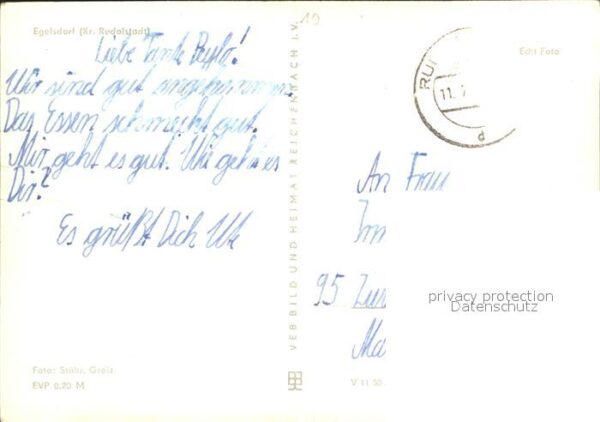 Egelsdorf (Kr. Rudolstadt)
Liebe Tante
Wir sind gut angekommen.
Das Essen schmeckt gut.
Mir geht es gut. Wie geht es
Dir?
Es grüßt Dich Ute
Foto: Stühr, Greiz
EVP 0.20 M
VEB BILD UND HEIMAT REICHENBACH I. V.
19
Echt Foto
RU
11.
d
An Frau
95
privacy protection
Datenschutz
V 11 50